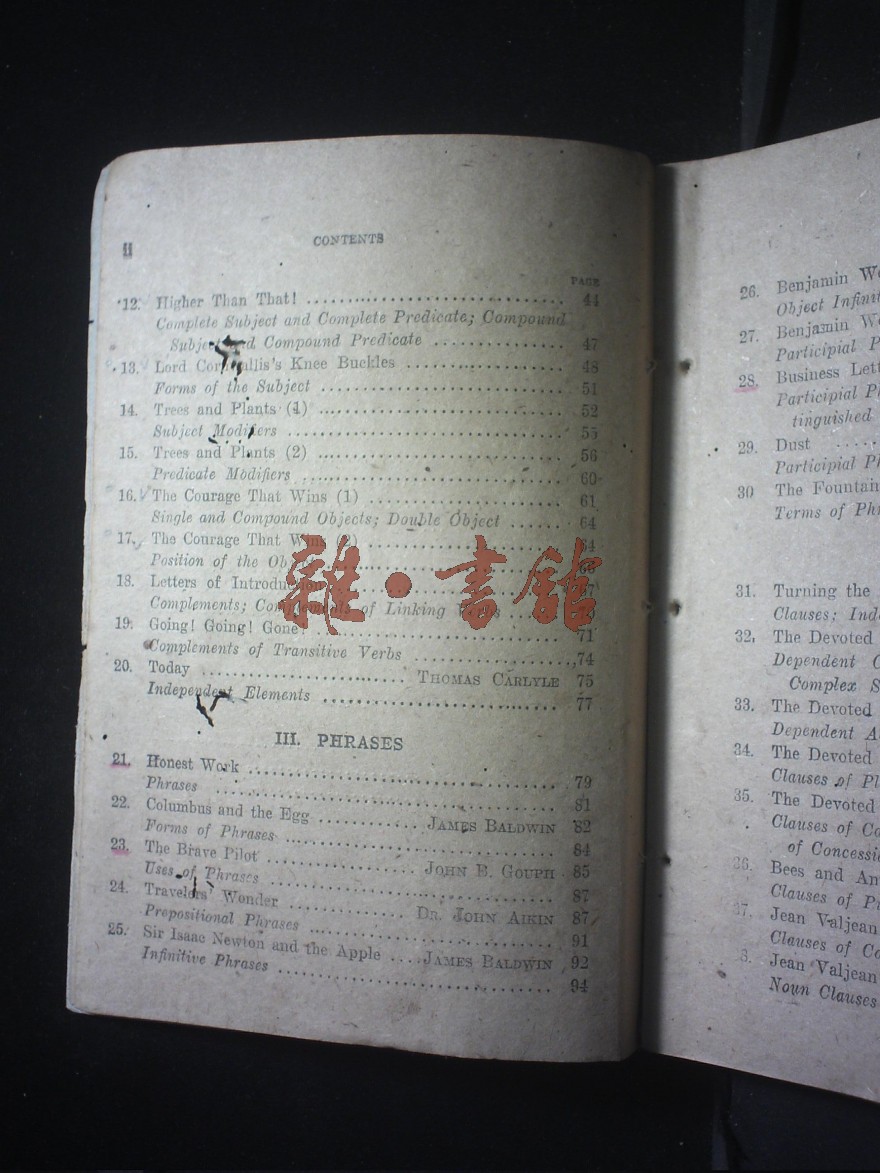 ii
CONTENTS
PAGE
12. Higher Than That! 44
Complete Subject and Complete Predicate; Compound
Subject and Compound Predicate 47
13. Lord Cornwallis's Knee Buckles 48
Forms of the Subject 51
14. Trees and Plants (1) 52
Subject Modifiers 55
15. Trees and Plants (2) 56
Predicate Modifiers 60
16. The Courage That Wins (1) 61
Single and Compound Objects; Double Object 64
17. The Courage That Wins (2)
Position of the
18. Letters of Introduction
Complements; Complements of Linking
19. Going! Going! Gone! 71
Complements of Transitive Verbs 74
20. Today THOMAS CARLYLE 75
Independent Elements 77
III. PHRASES
21. Honest Work 79
Phrases 81
22. Columbus and the Egg JAMES BALDWIN 82
Forms of Phrases 84
23. The Brave Pilot JOHN B. GOUPH 85
Uses of Phrases 87
24. Travelers' Wonder DR. JOHN AIKIN 87
Prepositional Phrases 91
25. Sir Isaac Newton and the Apple JAMES BALDWIN 92
Infinitive Phrases 94
雜·書館
26. Benjamin
Object
27. Benjamin
Participial
28. Business
Participial
tinguished
29. Dust
Participial
30 The
Terms of
31. Turning the
Clauses;
32. The Devoted
Dependent
Complex
33. The Devoted
Dependent
34. The Devoted
Clauses of
35. The Devoted
Clauses of
of
36. Bees and
Clauses of
37. Jean Valjean
Clauses of
8. Jean Valjean
Noun Clauses